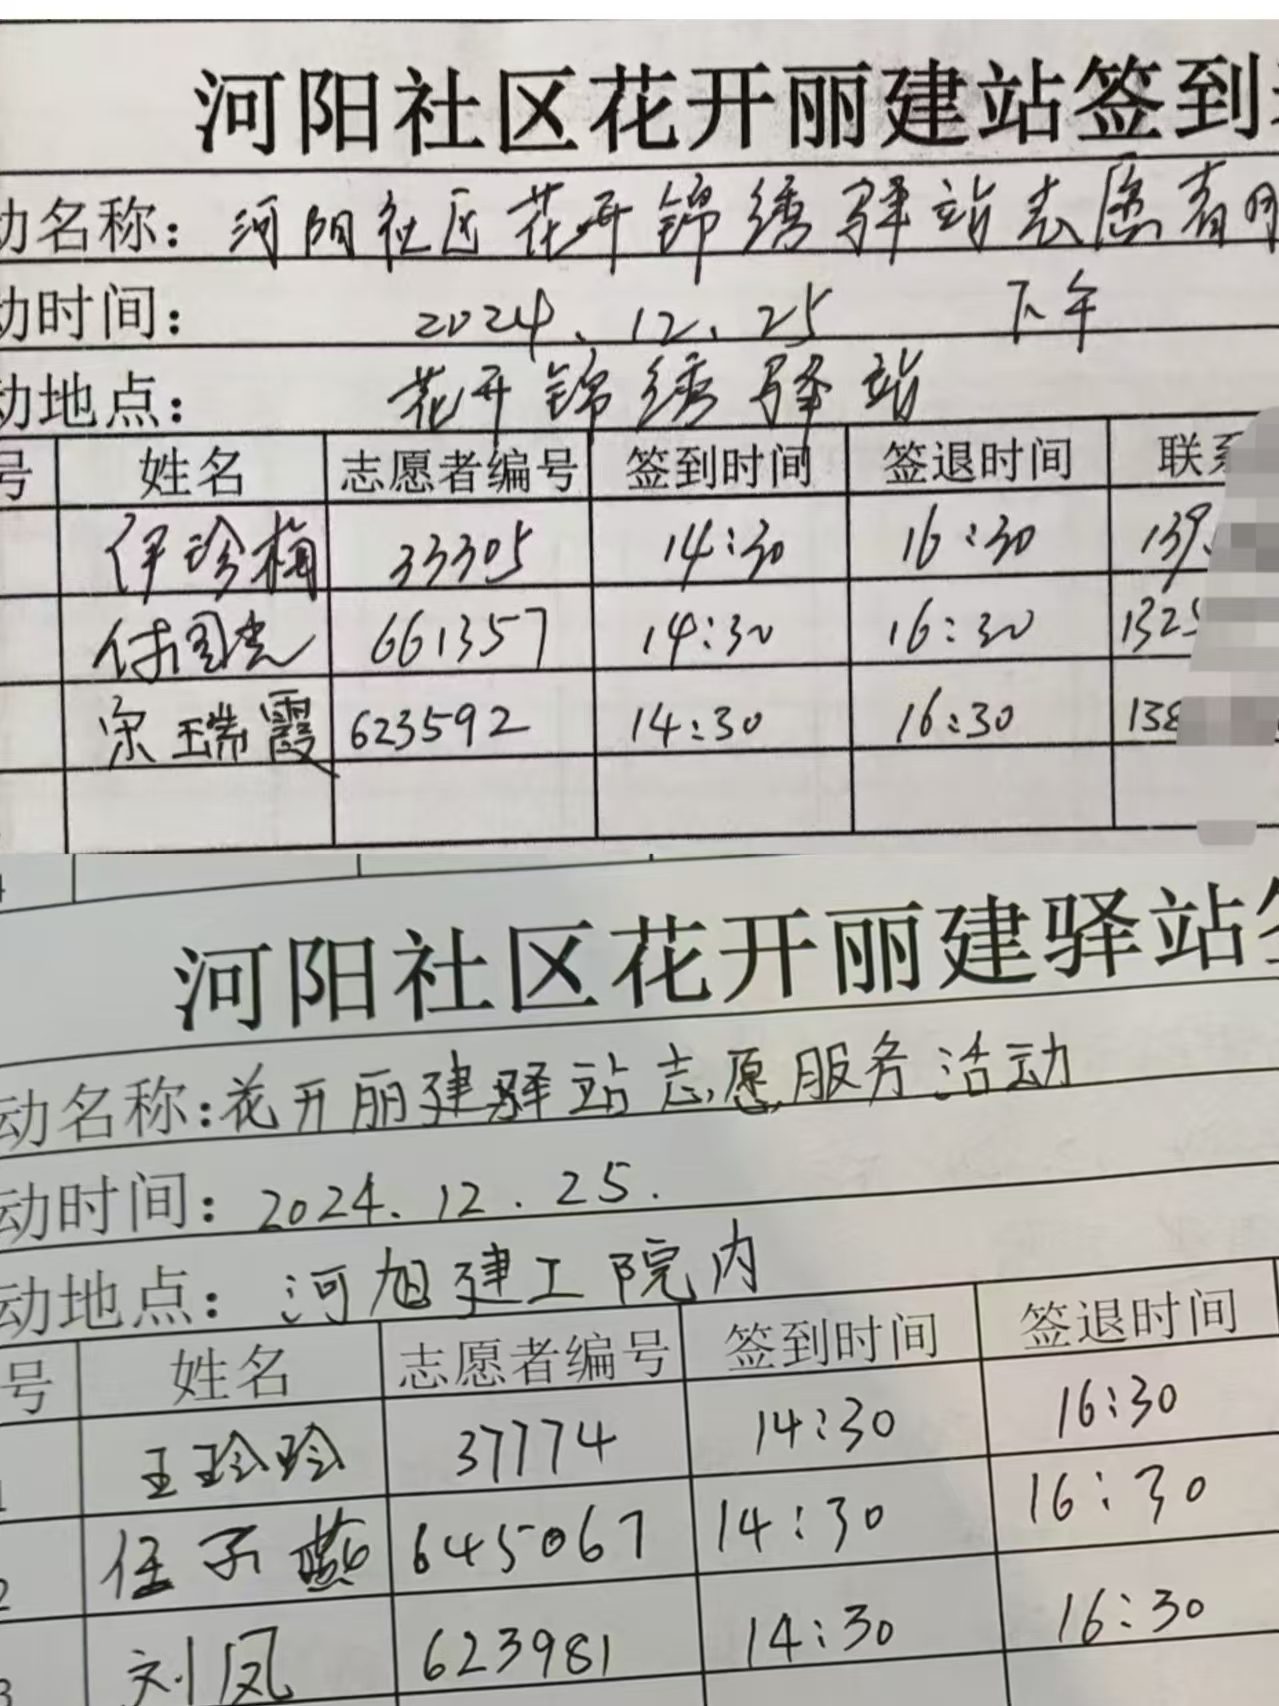 河阳社区花开丽建站签到
动名称：河阳社区花开锦绣驿站志愿者服
动时间： 2024.12.25 下午
动地点： 花开锦绣驿站
号 姓名 志愿者编号 签到时间 签退时间 联系
伊珍梅 33305 14:30 16:30 139
付国光 661357 14:30 16:30 1325
宋瑞霞 623592 14:30 16:30 138
4
河阳社区花开丽建驿站签
动名称：花开丽建驿站志愿服务活动
动时间：2024.12.25.
动地点：河旭建工院内
号 姓名 志愿者编号 签到时间 签退时间
1 王玲玲 37774 14:30 16:30
2 任子燕 645067 14:30 16:30
3 刘凤 623981 14:30 16:30